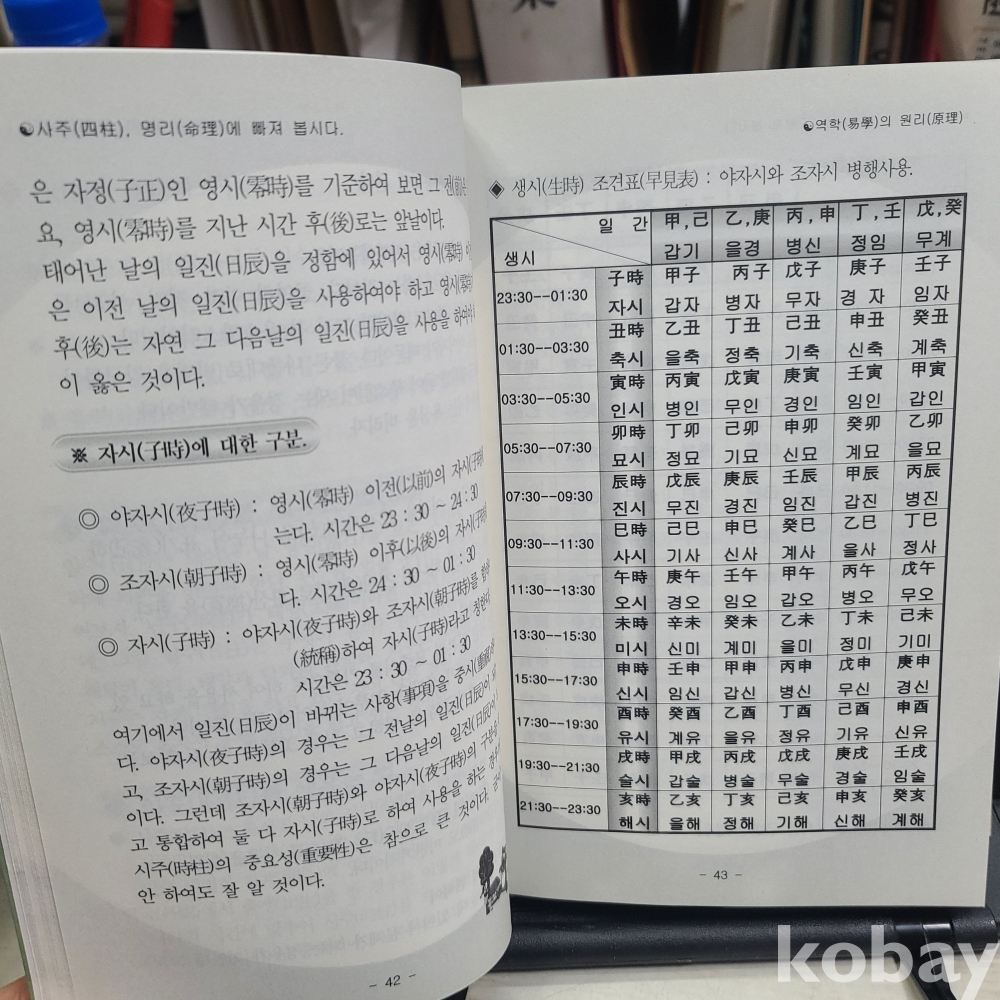 ☯사주(四柱), 명리(命理)에 빠져 봅시다.
은 자정(子正)인 영시(零時)를 기준하여 보면 그 전(前)은
요, 영시(零時)를 지난 시간 후(後)로는 앞날이다.
태어난 날의 일진(日辰)을 정함에 있어서 영시(零時)
은 이전 날의 일진(日辰)을 사용하여야 하고 영시(零時)
후(後)는 자연 그 다음날의 일진(日辰)을 사용을 하여야
이 옳은 것이다.
※ 자시(子時)에 대한 구분.
◎ 야자시(夜子時) : 영시(零時) 이전(以前)의 자시(子時)
는다. 시간은 23 : 30 ~ 24 : 30
◎ 조자시(朝子時) : 영시(零時) 이후(以後)의 자시(子時)
다. 시간은 24 : 30 ~ 01 : 30
◎ 자시(子時) : 야자시(夜子時)와 조자시(朝子時)를 합하
(統稱)하여 자시(子時)라고 칭한다
시간은 23 : 30 ~ 01 : 30
여기에서 일진(日辰)이 바뀌는 사항(事項)을 중시(重視)
다. 야자시(夜子時)의 경우는 그 전날의 일진(日辰)이
고, 조자시(朝子時)의 경우는 그 다음날의 일진(日辰)이
이다. 그런데 조자시(朝子時)와 야자시(夜子時)의 구분을
고 통합하여 둘 다 자시(子時)로 하여 사용을 하는
시주(時柱)의 중요성(重要性)은 참으로 큰 것이다.
안 하여도 잘 알 것이다.
- 42 -
☯역학(易學)의 원리(原理)
◈ 생시(生時) 조견표(早見表) : 야자시와 조자시 병행사용.
일 간 甲,己 乙,庚 丙,申 丁,壬 戊,癸
생시 갑기 을경 병신 정임 무계
23:30--01:30 子時 甲子 丙子 戊子 庚子 壬子
자시 갑자 병자 무자 경 자 임자
01:30--03:30 丑時 乙丑 丁丑 己丑 申丑 癸丑
축시 을축 정축 기축 신축 계축
03:30--05:30 寅時 丙寅 戊寅 庚寅 壬寅 甲寅
인시 병인 무인 경인 임인 갑인
05:30--07:30 卯時 丁卯 己卯 申卯 癸卯 乙卯
묘시 정묘 기묘 신묘 계묘 을묘
07:30--09:30 辰時 戊辰 庚辰 壬辰 甲辰 丙辰
진시 무진 경진 임진 갑진 병진
09:30--11:30 巳時 己巳 申巳 癸巳 乙巳 丁巳
사시 기사 신사 계사 을사 정사
11:30--13:30 午時 庚午 壬午 甲午 丙午 戊午
오시 경오 임오 갑오 병오 무오
13:30--15:30 未時 辛未 癸未 乙未 丁未 己未
미시 신미 계미 을미 정미 기미
15:30--17:30 申時 壬申 甲申 丙申 戊申 庚申
신시 임신 갑신 병신 무신 경신
17:30--19:30 酉時 癸酉 乙酉 丁酉 己酉 申酉
유시 계유 을유 정유 기유 신유
19:30--21:30 戌時 甲戌 丙戌 戊戌 庚戌 壬戌
술시 갑술 병술 무술 경술 임술
21:30--23:30 亥時 乙亥 丁亥 己亥 申亥 癸亥
해시 을해 정해 기해 신해 계해
- 43 -
kobay